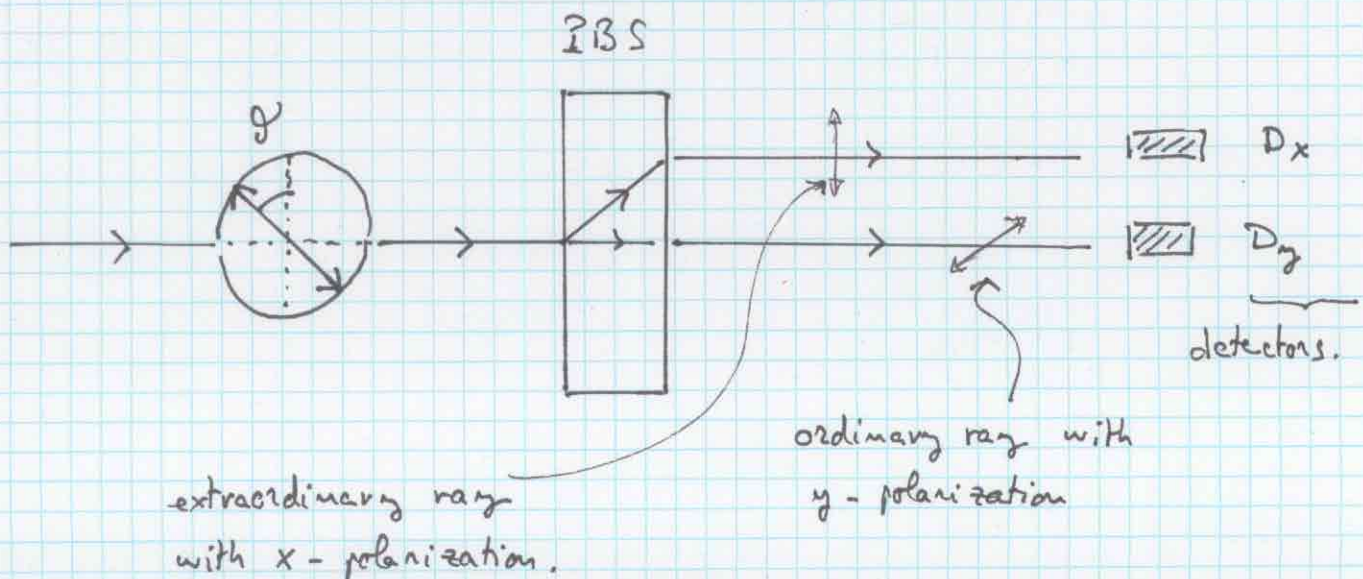 PBS
ϑ
Dx
Dy
detectors.
ordinary ray with
y - polarization
extraordinary ray
with x - polarization.